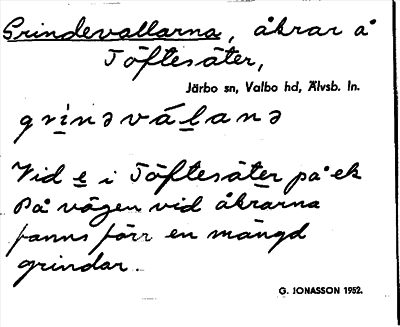 Grindevallarna, åkrar å
Töftesäter,
Järbo sn, Valbo hd, Älvsb. ln.
grinəválanə
Vid e i Töftesäter på ek
På vägen vid åkrarna
fanns förr en mängd
grindar.
G. JONASSON 1952.